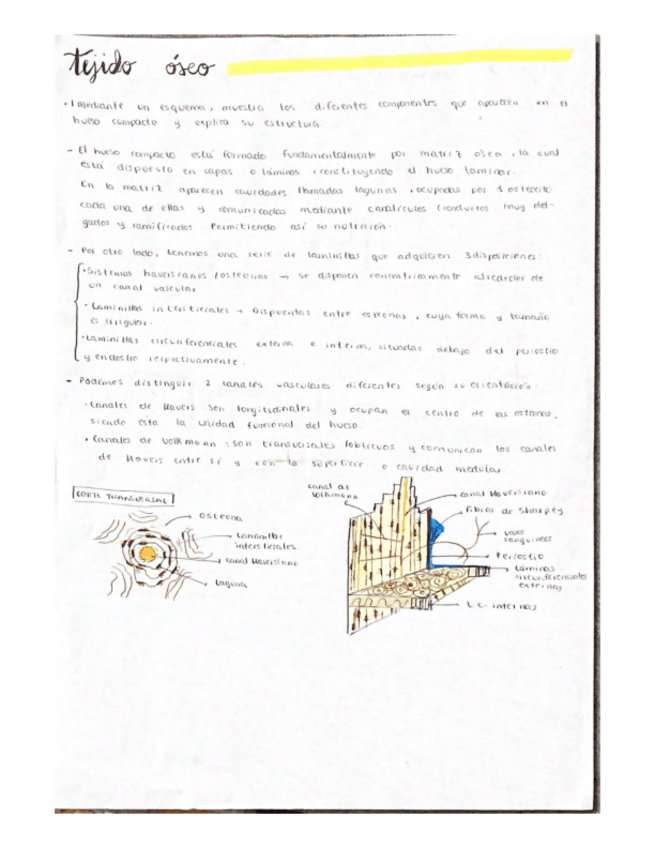 tejido óseo
· 1 Mediante un esquema, muestra los diferentes componentes que aparecen en el
hueso compacto y explica su estructura.
- El hueso compacto está formado fundamentalmente por matriz ósea, la cual
está dispuesto en capas o láminas, constituyendo el hueso laminar.
En la matriz aparecen cavidades llamadas lagunas, ocupadas por 1 osteocito
cada una de ellas y comunicadas mediante canalículos (conductos muy del-
gados y ramificados. Permitiendo así su nutrición.
- Por otro lado, tenemos una serie de laminillas que adquieren 3 disposiciones:
· Sistemas haversianos / osteonas → se disponen concéntricamente alrededor de
un canal vascular
· Laminillas intersticiales → Dispuestas entre osteonas, cuya forma y tamaño
es irregular.
· Laminillas circunferenciales externa e interna, situadas debajo del periostio
y endostio respectivamente.
- Podemos distinguir 2 canales vasculares diferentes según su orientación.
· Canales de Havers: son longitudinales y ocupan el centro de las osteonas,
siendo esta la unidad funcional del hueso.
· Canales de Volkmann: son transversales / oblicuos y comunican los canales
de Havers entre sí y con la superficie o cavidad medular.
CORTE TRANSVERSAL
osteona
Laminillas
intersticiales
canal Haversiano
laguna
canal de
Volkmann
canal Haversiano
Fibras de Sharpey
vasos
sanguíneos
Periostio
Láminas
circunferenciales
externas
L.C. internas